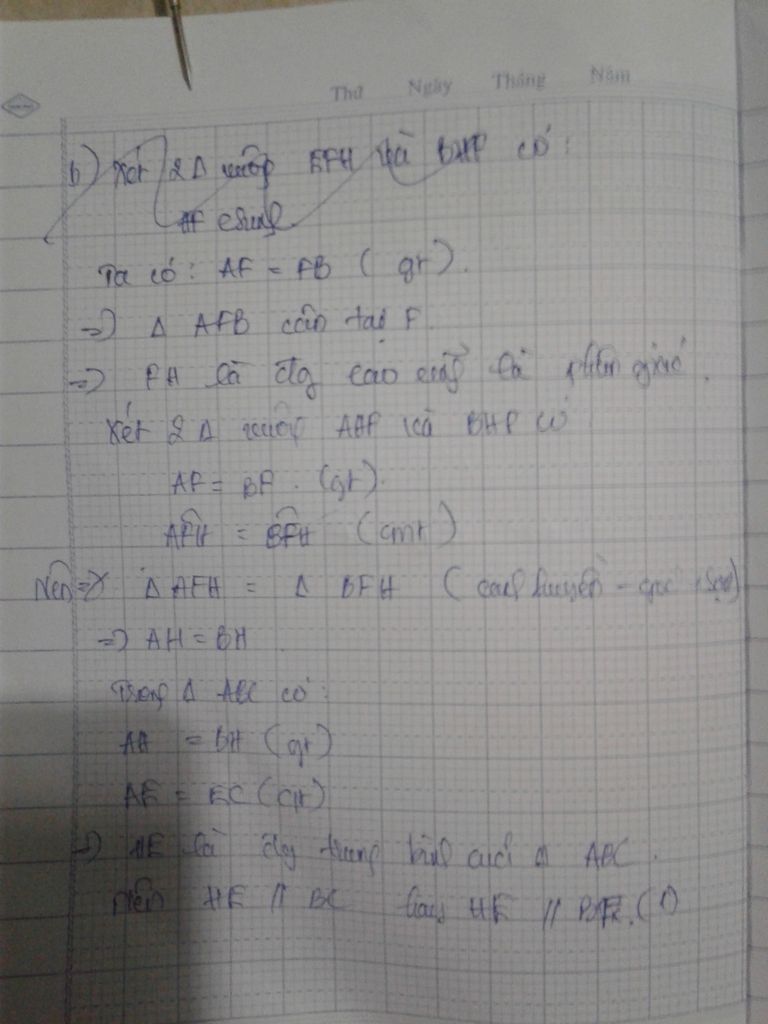 Thứ Ngày Tháng Năm
b) Xét 2Δ vuông EFH và BHF có:
HF chung
Ta có: AF = FB (gt).
=> Δ AFB cân tại F.
=> FH là đg cao cũng là phân giác.
Xét 2Δ vuông AHF và BHF có
AF = BF. (gt).
AFH = BFH (cmt)
Nên => Δ AFH = Δ BFH (cạnh huyền - góc nhọn)
=> AH = BH
Trong Δ ABC có:
AH = BH (gt)
AE = EC (gt)
=> HE là đg trung bình của Δ ABC.
nên HE // BC hay HE // (1)